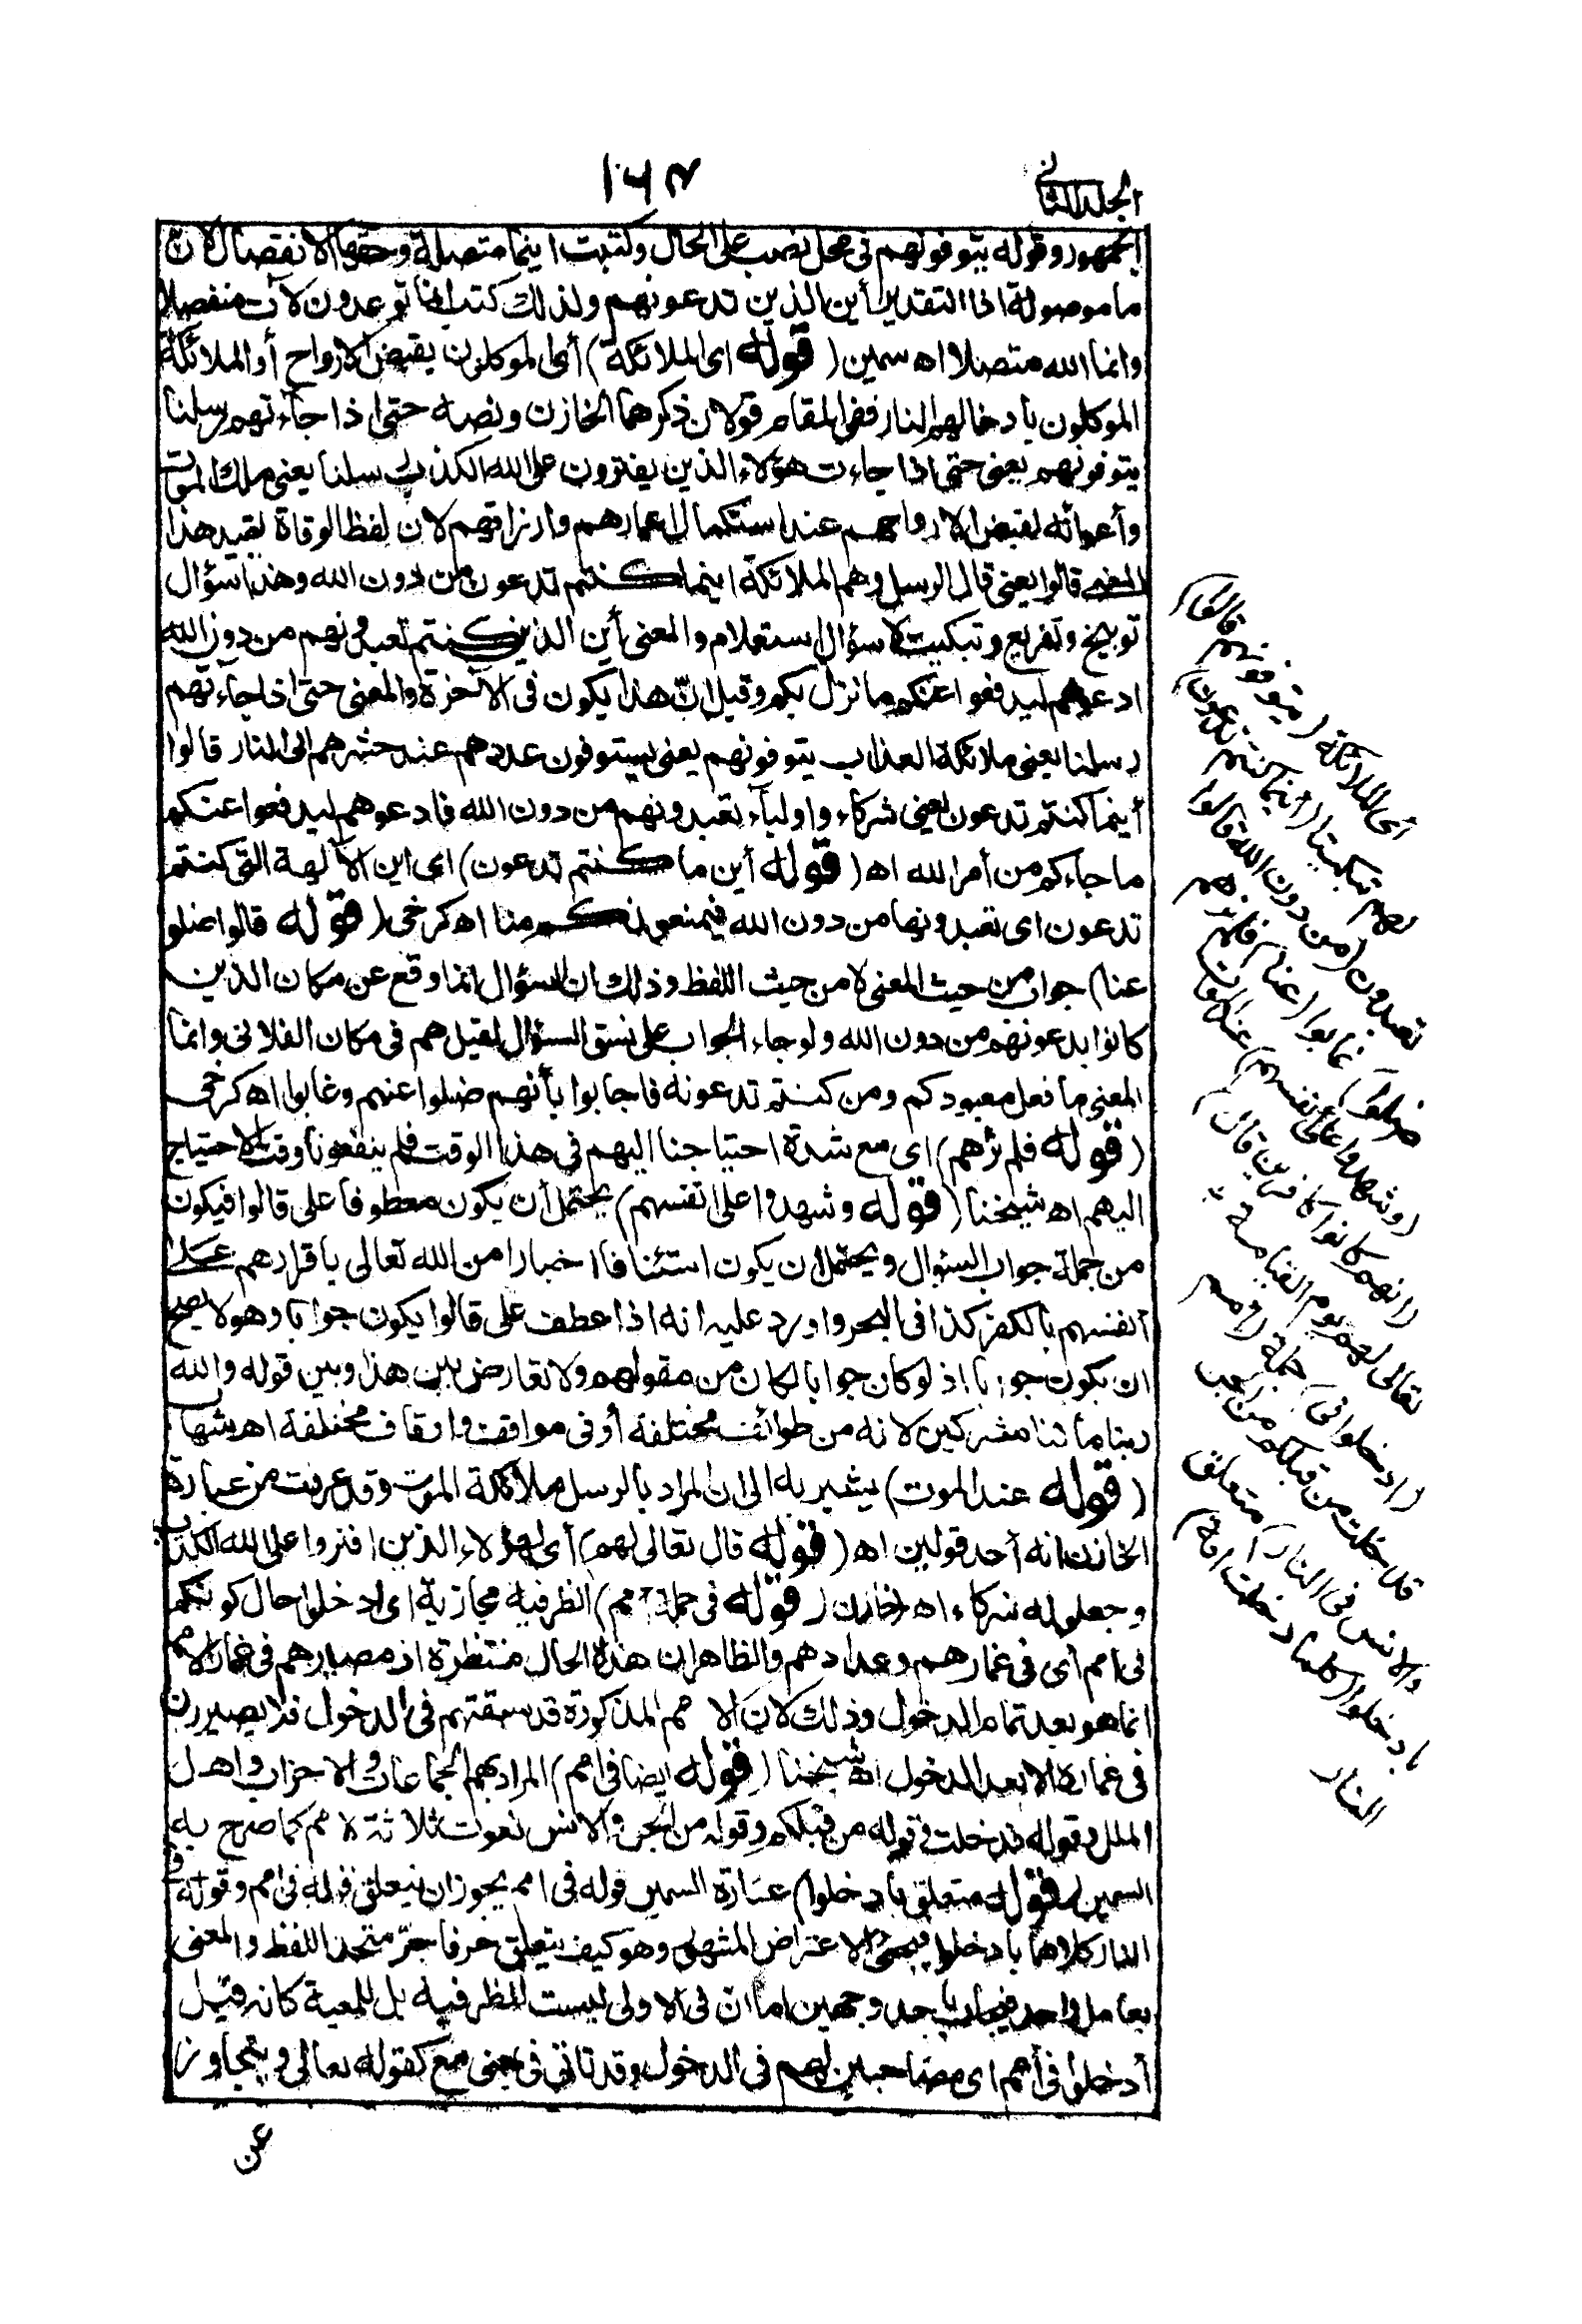 الجلد الثاني
١٦٣
الجمهور وقوله يتوفونهم في محل نصب على الحال وكتبت اينما متصلة وحقها الانفصال لان
ما موصولة اذا التقدير أين الذين تدعونهم ولذلك كتب انما توعدون لآت منفصلا
وانما الله متصلا اه سمين (قوله اى الملائكة) أى الموكلون بقبض الارواح أو الملائكة
الموكلون بادخالهم النار ففى المقام قولان ذكرهما الخازن ونصه حتى اذا جاءتهم رسلنا
يتوفونهم يعنى حتى اذا جاءت هؤلاء الذين يفترون على الله الكذب رسلنا يعنى ملك الموت
وأعوانه لقبض الارواحهم عند استكمال اعمارهم وارزاقهم لان لفظ الوفاة يفيد هذا
المعنى قالوا يعنى قال الرسل وهم الملائكة اينما كنتم تدعون من دون الله وهذا سؤال
توبيخ وتقريع وتبكيت لا سؤال استعلام والمعنى أين الذين كنتم تعبدونهم من دون الله
ادعوهم ليدفعوا عنكم ما نزل بكم وقيل انّ هذا يكون فى الآخرة والمعنى حتى اذا جاءتهم
رسلنا يعنى ملائكة العذاب يتوفونهم يعنى يستوفون عددهم عند حشرهم الى النار قالوا
أينما كنتم تدعون يعنى شركاء واولياء تعبدونهم من دون الله فادعوهم ليدفعوا عنكم
ما جاءكم من أمر الله اه (قوله أين ما كنتم تدعون) اى اين الآلهة التى كنتم
تدعون اى تعبدونها من دون الله فيمنعونكم منا اه كرخى (قوله قالوا ضلوا
عنا) جواب من حيث المعنى لا من حيث اللفظ وذلك ان السؤال انما وقع عن مكان الذين
كانوا يدعونهم من دون الله ولو جاء الجواب على نسق السؤال لقيل هم فى مكان الفلانى وانما
المعنى ما فعل معبودكم ومن كنتم تدعونه فاجابوا بأنهم ضلوا عنهم وغابوا اه كرخى
(قوله فلم نرهم) اى مع شدة احتياجنا اليهم فى هذا الوقت فلم ينفعونا وقت الاحتياج
اليهم اه شيخنا (قوله وشهدوا على انفسهم) يحتمل أن يكون معطوفا على قالوا فيكون
من جملة جواب السؤال ويحتمل ان يكون استئنافا اخبارا من الله تعالى باقرارهم على
انفسهم بالكفر كذا فى البحر واورد عليه انه اذا عطف على قالوا يكون جوابا وهو لا يصح
ان يكون جوابا اذ لو كان جوابا لكان من مقولهم ولا تعارض بين هذا وبين قوله والله
ربنا ما كنا مشركين لانه من طوائف مختلفة أو فى مواقف واوقات مختلفة اه شهاب
(قوله عند الموت) يشير به الى ان المراد بالرسل ملائكة الموت وقد عرفت من عبارة
الخازن انه أحد قولين اه (قوله قال تعالى لهم) أى لهؤلاء الذين افتروا على الله الكذب
وجعلوا له شركاء اه خازن (قوله فى جملة امم) الظرفية مجازية اى ادخلوا حال كونكم
فى امم اى فى غمارهم وعدادهم والظاهر ان هذه الحال منتظرة اذ مصيرهم فى غمار الامم
انما هو بعد تمام الدخول وذلك لان الامم المذكورة قد سبقتهم فى الدخول فلا يصيرون
فى غمارها الا بعد الدخول اه شيخنا (قوله ايضا فى امم) المراد بهم الجماعات والاحزاب واهل
الملل وقوله قد خلت وقوله من قبلكم وقوله من الجن والانس نعوت ثلاثة لامم كما صرح به
السمين (قوله متعلق بادخلوا) عبارة السمين قوله فى امم يجوز ان يتعلق قوله فى امم وقوله فى
النار كلاهما بادخلوا فيجئ الاعتراض المشهور وهو كيف يتعلق حرفا جرّ متحد اللفظ والمعنى
بعامل واحد فيجاب باحد وجهين اما ان فى الاولى ليست للظرفية بل للمعية كانه قيل
أدخلوا فى أمم اى مصاحبين لهم فى الدخول وقد تأتى فى بمعنى مع كقوله تعالى ويتجاوز
عن
أى الملائكة (يتوفونهم قالوا)
لهم تبكيتا (اينما كنتم تدعون)
تعبدون (من دون الله قالوا
ضلوا) غابوا (عنا) فلم نرهم
(وشهدوا على انفسهم) عند الموت
(انهم كانوا كافرين قال)
تعالى لهم يوم القيامة
(ادخلوا فى) جملة (امم
قد خلت من قبلكم من الجن
والانس فى النار) متعلق
بادخلوا (كلما دخلت امة)
النار